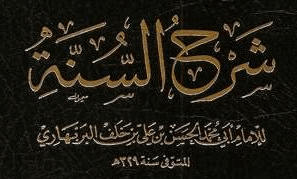 شرح السنة
للإمام أبي محمد الحسن بن علي بن خلف البربهاري
المتوفى سنة ٣٢٩هـ